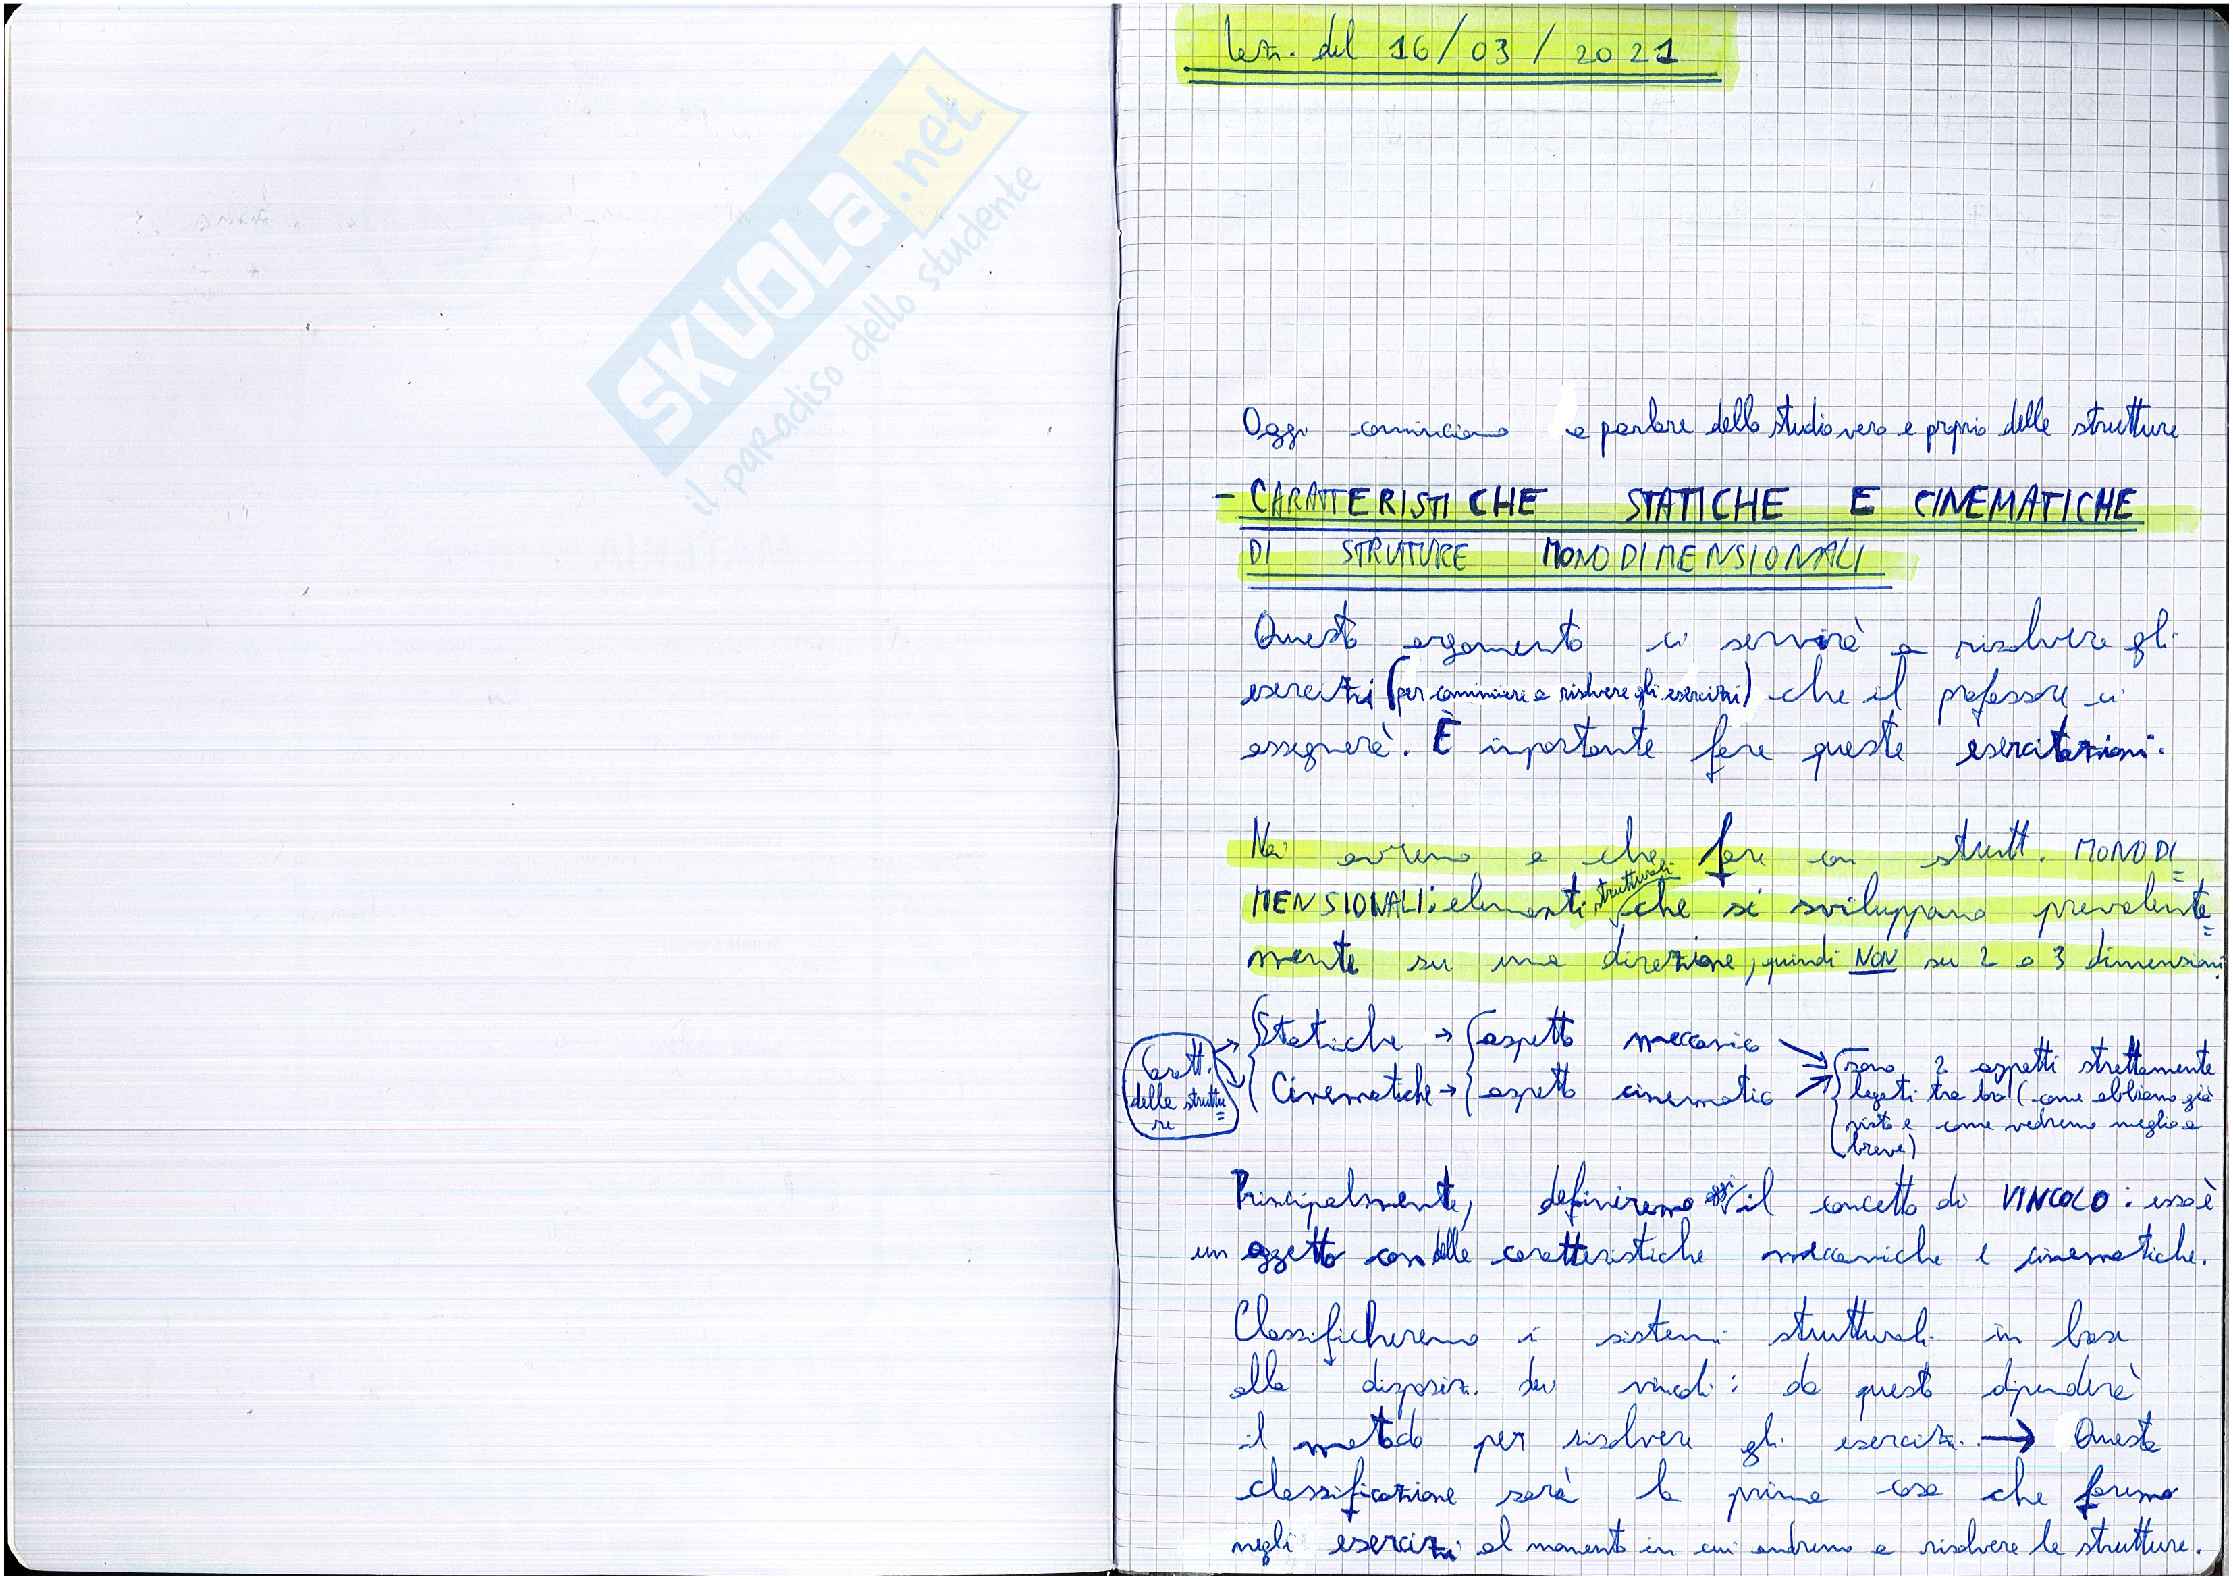 SKUOLA.net
il paradiso dello studente
Lez. del 16/03/2021
Oggi cominciamo a parlare dello studio vero e proprio delle strutture
- CARATTERISTICHE STATICHE E CINEMATICHE
DI STRUTTURE MONODIMENSIONALI
Questo argomento ci servirà a risolvere gli
esercizi (per cominciare a risolvere gli esercizi) che il professore ci
assegnerà. È importante fare queste esercitazioni.
Noi avremo a che fare con strutt. MONODI=
MENSIONALI: elementi strutturali che si sviluppano prevalente=
mente su una direzione, quindi NON su 2 o 3 dimensioni.
Caratt. delle struttu= re
Statiche → aspetto meccanico
Cinematiche → aspetto cinematico
sono 2 aspetti strettamente
legati tra loro (come abbiamo già
visto e come vedremo meglio a
breve)
Principalmente, definiremo oggi il concetto di VINCOLO: esso è
un oggetto con delle caratteristiche meccaniche e cinematiche.
Classificheremo i sistemi strutturali in base
alla disposiz. dei vincoli: da questo dipenderà
il metodo per risolvere gli esercizi. → Questa
classificazione sarà la prima cosa che faremo
negli esercizi al momento in cui andremo a risolvere le strutture.